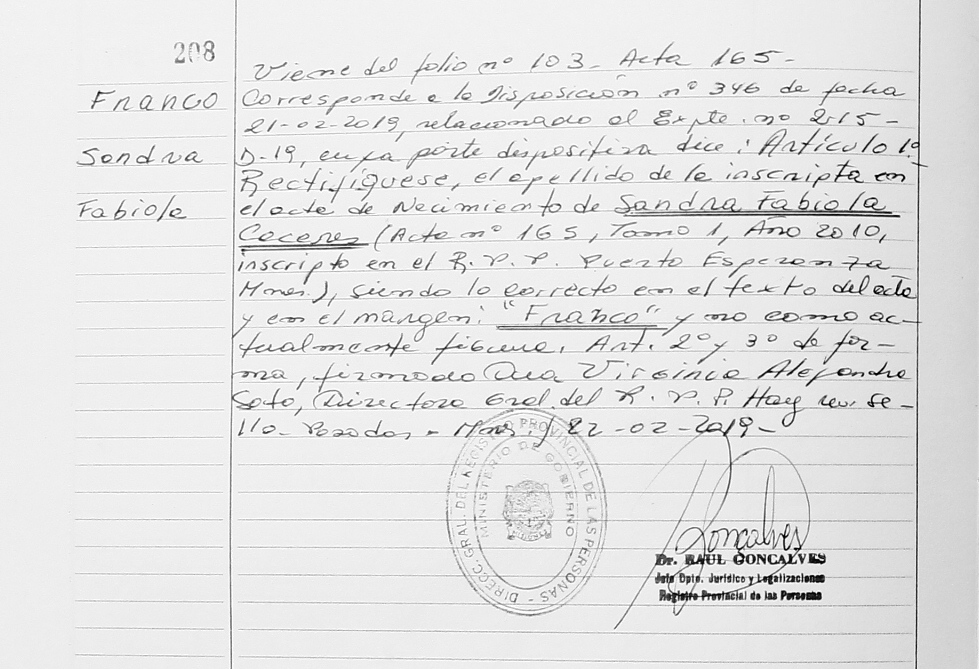 208
Franco
Sandra
Fabiola
Viene del folio nº 103 - Acta 165 -
Corresponde a la Disposición nº 346 de fecha
21-02-2019, relacionado al Expte. nº 215-
D-19, cuya parte dispositiva dice: Artículo 1º
Rectifíquese, el apellido de la inscripta en
el acta de Nacimiento de Sandra Fabiola
Caceres (Acta nº 165, Tomo 1, Año 2010,
inscripto en el R. P. P. Puerto Esperanza
Mnes.), siendo lo correcto en el texto del acta
y en el margen: "Franco" y no como ac-
tualmente figura. Art. 2º y 3º de for-
ma, firmado Dra Virginia Alejandra
Soto, Directora Gral. del R. P. P. Hay un se-
llo - Posadas - Mnes, 22-02-2019 -
DIRECC. GRAL. DEL REGISTRO PROVINCIAL DE LAS PERSONAS -
MINISTERIO DE GOBIERNO
Gonçalves
Dr. RAUL GONCALVES
Jefe Dpto. Jurídico y Legalizaciones
Registro Provincial de las Personas